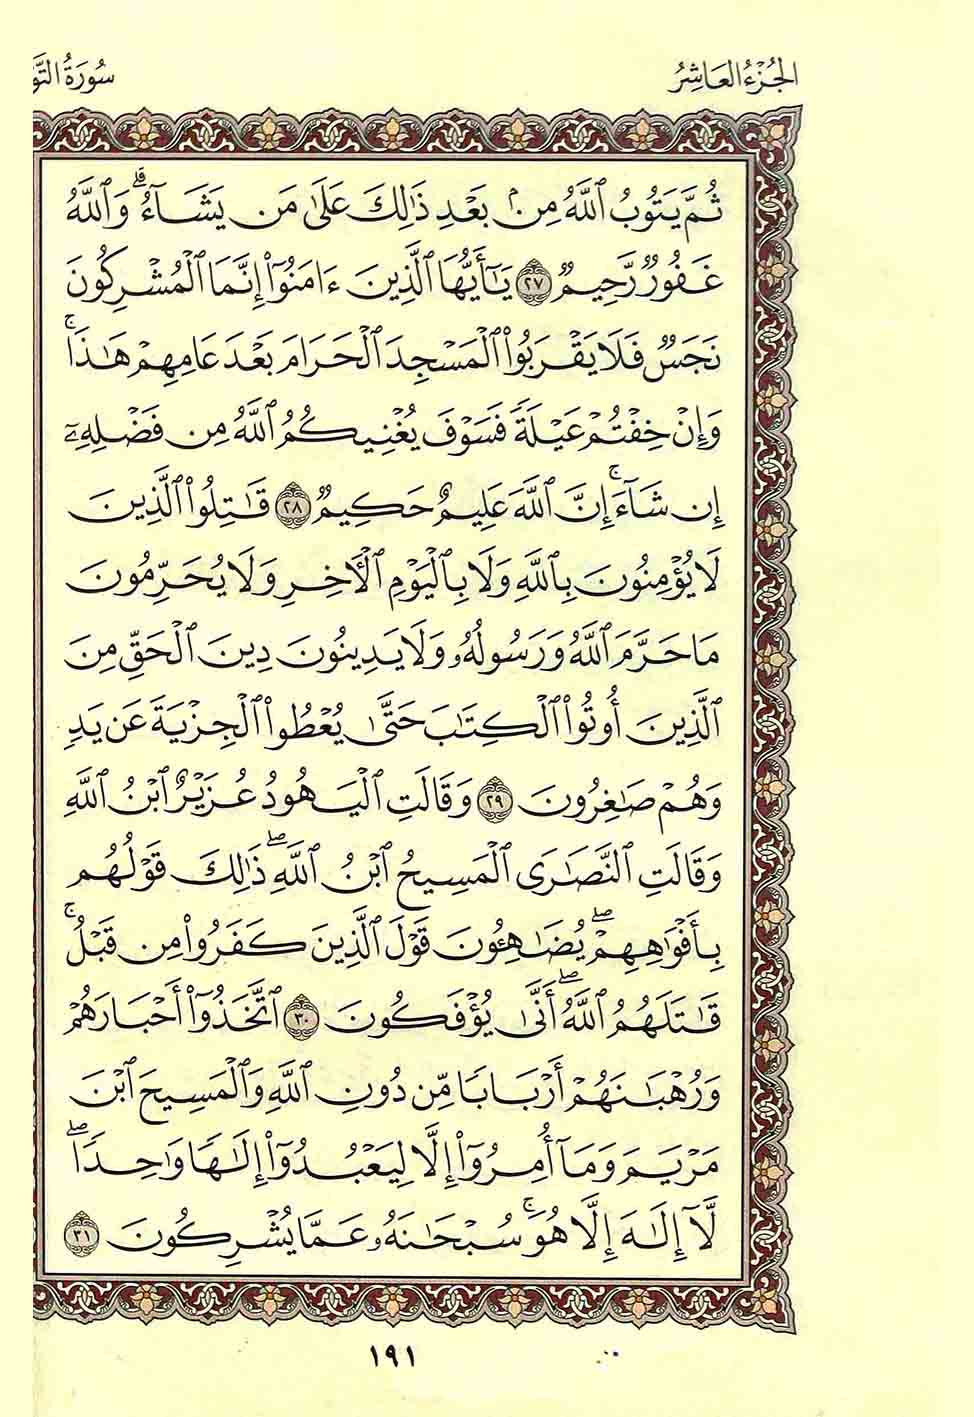 الجُزْءُ العَاشِرُ
سُورَةُ التَّوْ
ثُمَّ يَتُوبُ ٱللَّهُ مِنۢ بَعْدِ ذَٰلِكَ عَلَىٰ مَن يَشَآءُۗ وَٱللَّهُ
غَفُورٌ رَّحِيمٌ ٢٧ يَٰٓأَيُّهَا ٱلَّذِينَ ءَامَنُوٓا۟ إِنَّمَا ٱلْمُشْرِكُونَ
نَجَسٌ فَلَا يَقْرَبُوا۟ ٱلْمَسْجِدَ ٱلْحَرَامَ بَعْدَ عَامِهِمْ هَٰذَاۚ
وَإِنْ خِفْتُمْ عَيْلَةً فَسَوْفَ يُغْنِيكُمُ ٱللَّهُ مِن فَضْلِهِۦٓ
إِن شَآءَۚ إِنَّ ٱللَّهَ عَلِيمٌ حَكِيمٌ ٢٨ قَٰتِلُوا۟ ٱلَّذِينَ
لَا يُؤْمِنُونَ بِٱللَّهِ وَلَا بِٱلْيَوْمِ ٱلْءَاخِرِ وَلَا يُحَرِّمُونَ
مَا حَرَّمَ ٱللَّهُ وَرَسُولُهُۥ وَلَا يَدِينُونَ دِينَ ٱلْحَقِّ مِنَ
ٱلَّذِينَ أُوتُوا۟ ٱلْكِتَٰبَ حَتَّىٰ يُعْطُوا۟ ٱلْجِزْيَةَ عَن يَدٍ
وَهُمْ صَٰغِرُونَ ٢٩ وَقَالَتِ ٱلْيَهُودُ عُزَيْرٌ ٱبْنُ ٱللَّهِ
وَقَالَتِ ٱلنَّصَٰرَى ٱلْمَسِيحُ ٱبْنُ ٱللَّهِۖ ذَٰلِكَ قَوْلُهُم
بِأَفْوَٰهِهِمْۖ يُضَٰهِـُٔونَ قَوْلَ ٱلَّذِينَ كَفَرُوا۟ مِن قَبْلُۚ
قَٰتَلَهُمُ ٱللَّهُۖ أَنَّىٰ يُؤْفَكُونَ ٣٠ ٱتَّخَذُوٓا۟ أَحْبَارَهُمْ
وَرُهْبَٰنَهُمْ أَرْبَابًا مِّن دُونِ ٱللَّهِ وَٱلْمَسِيحَ ٱبْنَ
مَرْيَمَ وَمَآ أُمِرُوٓا۟ إِلَّا لِيَعْبُدُوٓا۟ إِلَٰهًا وَٰحِدًاۖ
لَّآ إِلَٰهَ إِلَّا هُوَۚ سُبْحَٰنَهُۥ عَمَّا يُشْرِكُونَ ٣١
١٩١